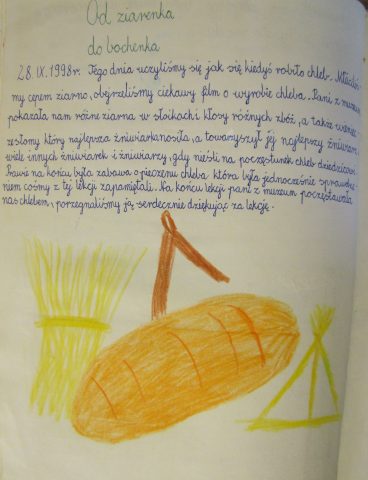 Od ziarenka
do bochenka
28.IX.1998r. Tego dnia uczyliśmy się jak się kiedyś robiło chleb. Młóciliś-
my cepem ziarno, obejrzeliśmy ciekawy film o wyrobie chleba. Pani z muzeum
pokazała nam różne ziarna w słoikach i kłosy różnych zbóż, a także wieniec
zesłomy który najlepsza żniwiarka nosiła, a towarzyszył jej najlepszy żniwiarz
wiele innych żniwiarek i żniwiarzy, gdy nieśli na poczęstunek chleb dziedzicowi
Prawie na końcu była zabawa o pieczeniu chleba, która była jednocześnie sprawdze-
niem cośmy z tej lekcji zapamiętali. Na końcu lekcji pani z muzeum poczęstowała
nas chlebem i pożegnaliśmy ją serdecznie dziękując za lekcję.